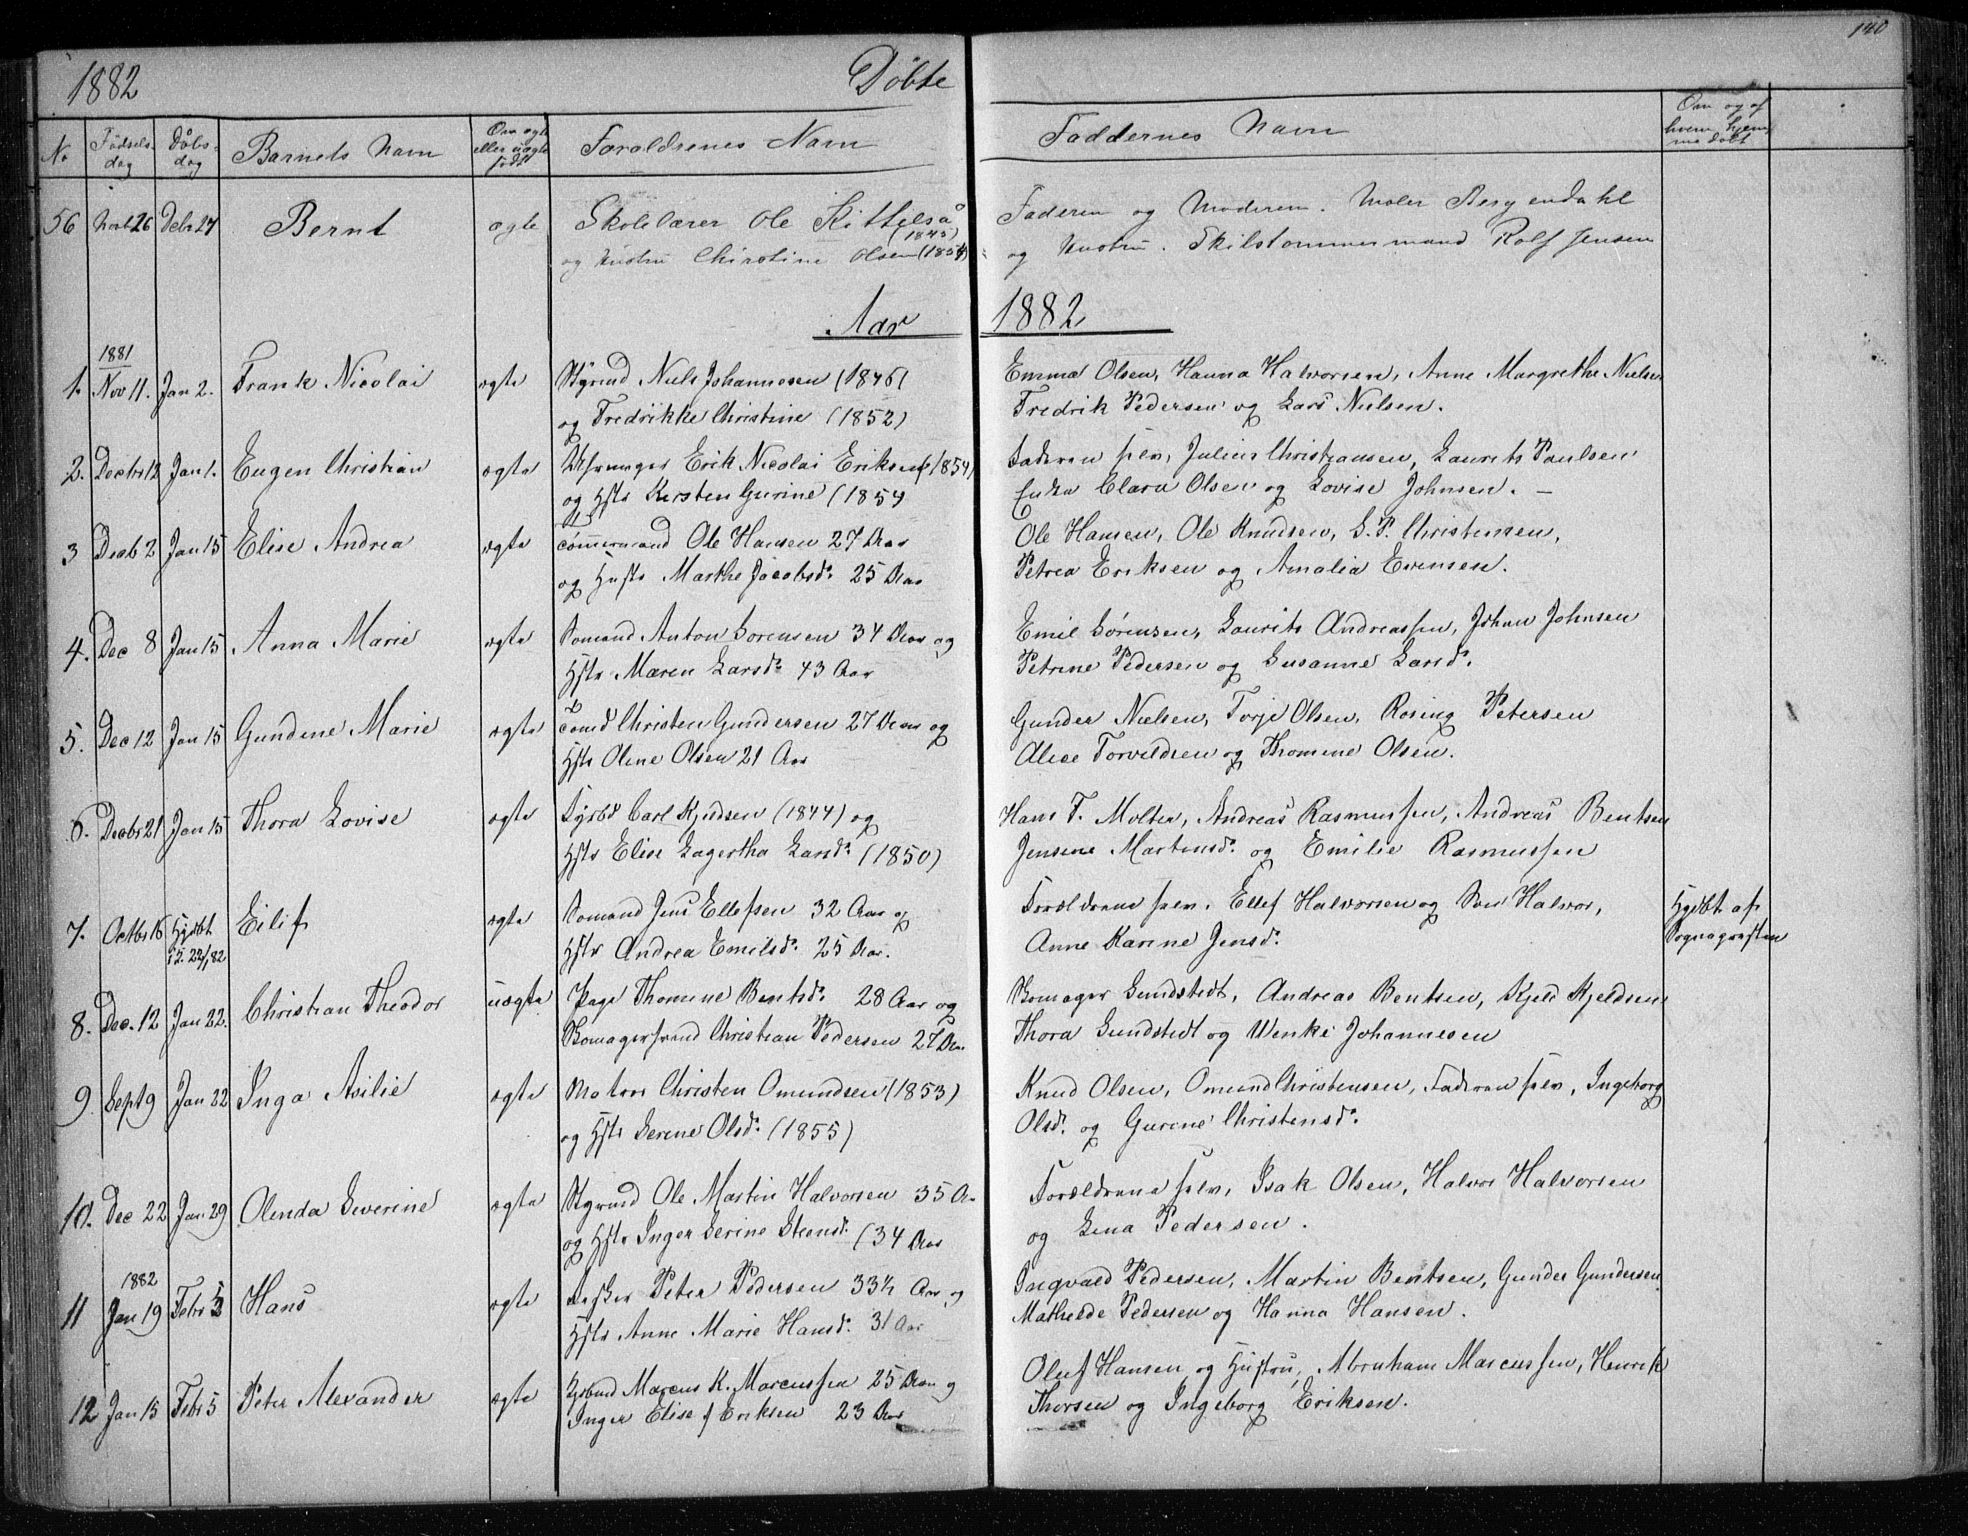 140
1882 Döbte
No
Fødsels
dag
Døbs-
dag
Barnets Navn
Om ægte
eller uægte
født
Forældrenes Navn
Faddernes Navn
Om og af
hvem hjem
me døbt
56 Novb 26 Debr 27 Bernt ægte Skolelærer Ole Kittelså (1845) Faderen og Moderen. Maler Bergendahl
og Hustru Christine Olsen (1854) og Hustru. Skibstømmermand Rolf Jensen
Aar 1882
1881
1. Nov 11. Jan 2. Frank Nicolai ægte Styrmd Niels Johannesen (1846) Emma Olsen, Hanna Halvorsen, Anne Margrethe Nielsen
og Fredrikke Christine (1852) Fredrik Pedersen og Lars Nielsen.
2. Decbr 12 Jan 1. Eugen Christian ægte Erik Nicolai Eriksen (1854) Faderen selv, Julius Christiansen, Laurits Paulsen
og Hstr Kirsten Gurine (1854 Enke Clara Olsen og Lovise Johnsen. —
3 Decb 2 Jan 15 Elise Andrea ægte Tømmermand Ole Hansen 27 Aar Ole Hansen, Ole Knudsen, G. P. Christensen,
og Hustr Marthe Jacobsd. 25 Aar Petrea Eriksen og Amalia Evensen.
4. Dec 8 Jan 15 Anna Marie ægte Sømand Anton Sørensen 34 Aar og Emil Sørensen, Laurits Andreassen, Johan Johnsen
Hstr Maren Larsd. 43 Aar Petrine Pedersen og Susanne Larsd.
5. Dec 12 Jan 15 Gundine Marie ægte Tømd Christen Gundersen 27 Aar og Gunder Nielsen, Torje Olsen, Rosing Petersen
Hstr Oline Olsen 21 Aar Alice Torvildsen og Thomine Olsen.
6. Decbr 21 Jan 15 Thora Lovise ægte Carl Kjeldsen (1844) og Hans F. Molter, Andreas Rasmussen, Andreas Bentsen
Hstr Elise Lagertha Larsd. (1850) Jensine Martinsd. og Emilie Rasmussen
7. Octbr 16 Hjdbt Eilif ægte Sømand Jens Ellefsen 32 Aar og Forældrene selv. Ellef Halvorsen og Halvor, Hjdbt af
22/1 82 Hstr Andrea Emilsd. 25 Aar. Anne Karine Jensd. Sognepræsten
8. Dec. 12 Jan 22. Christian Theodor uægte Pige Thomine Bentsd. 28 Aar og Skomager Lundstedt, Andreas Bentsen, Kjeld Kjeldsen
Skomagersvend Christian Pedersen 27 Aar Thora Lundstedt og Wenke Johannesen
9. Sept 9 Jan 22 Inga Asilie ægte Matros Christen Omundsen (1853) Knud Olsen, Omund Christensen, Faderen selv, Ingeborg
og Hstr Serine Olsd. (1855) Olsd. og Gurine Christensd.
10. Dec 22 Jan 29 Olinda Severine ægte Styrmd Ole Martin Halvorsen 35 Aar Forældrene selv, Isak Olsen, Halvor Halvorsen
og Hstr Inger Serine Steensd. (34 Aar og Lina Pedersen.
1882
11 Jan 19 Febr 5 Hans ægte Fisker Peter Pedersen 33½ Aar og Ingvald Pedersen, Martin Bentsen, Gunder Gundersen
Hstr Anne Marie Hansd. 31 Aar Mathilde Pedersen og Hanna Hansen.
12 Jan 15 Febr 5 Peter Alexander ægte Marcus K. Marcussen 25 Aar og Oluf Hansen og Hustru, Abraham Marcussen, Henrik
Inger Elise f Eriksen 23 Aar Thorsen og Ingeborg Eriksen.